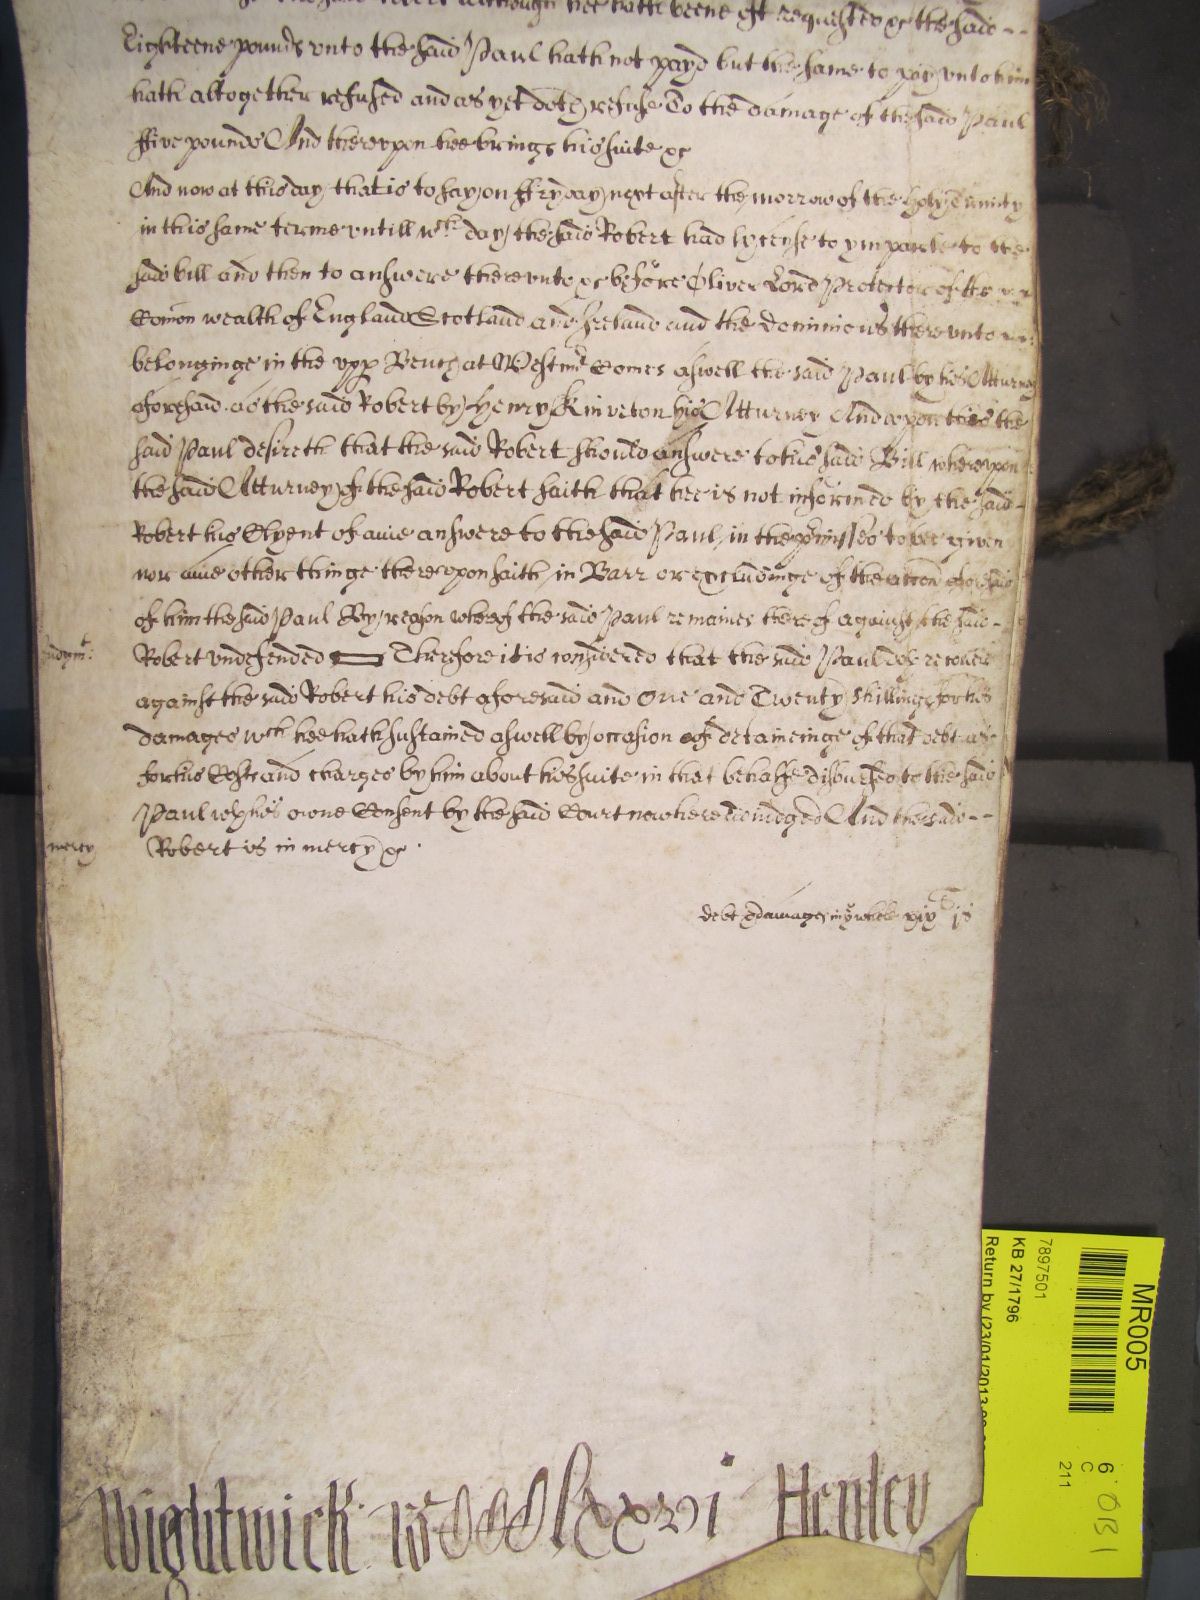 the said Robert although hee hath beene oft requested &c the said --
Eighteene pounds vnto the said Paul hath not payd but the same to pay vnto him
hath altogether refused and as yet doth refuse To the damage of the said Paul
ffive pounds And therevpon hee brings his suite &c
And now at this day that is to say on ffryday next after the morrow of the holy Trinity
in this same terme vntill wch day the said Robert had lycense to ymparle to the
said bill and then to answere therevnto &c before Oliver Lord Protector of the
Com̄on wealth of England Scotland and Ireland and the dominions therevnto
belonginge in the vpp Bench at Westmr Comes aswell the said Paul by his Atturney
aforesaid as the said Robert by Henry Kinveton his Atturney And vpon this the
said Paul desireth that the said Robert should answere to this said Bill wherevpon
the said Atturney of the said Robert saith that hee is not informed by the said -
Robert his Clyent of anie answere to the said Paul in the p̄misses to bee given
nor anie other thinge therevpon saith in Barr or excludinge of the acc̄on aforesaid
of him the said Paul By reason whereof the said Paul remaines thereof against the said -
Judgmt: Robert vndefended Therefore it is considered that the said Paul doe recover
against the said Robert his debt aforesaid and One and Twenty shillings for his
damages wch hee hath sustained aswell by occasion of detaineinge of that debt as
for his Costs and charges by him about his suite in that behalfe disbursed to the said
Paul wth his owne Consent by the said Court now here adiudged And the said --
mercy Robert is in mercy &c .
debt & damages in ye whole xixl js
Wightwick Henley
MR005
7897501
KB 27/1796
Return by (23/01/2013
6
C
211